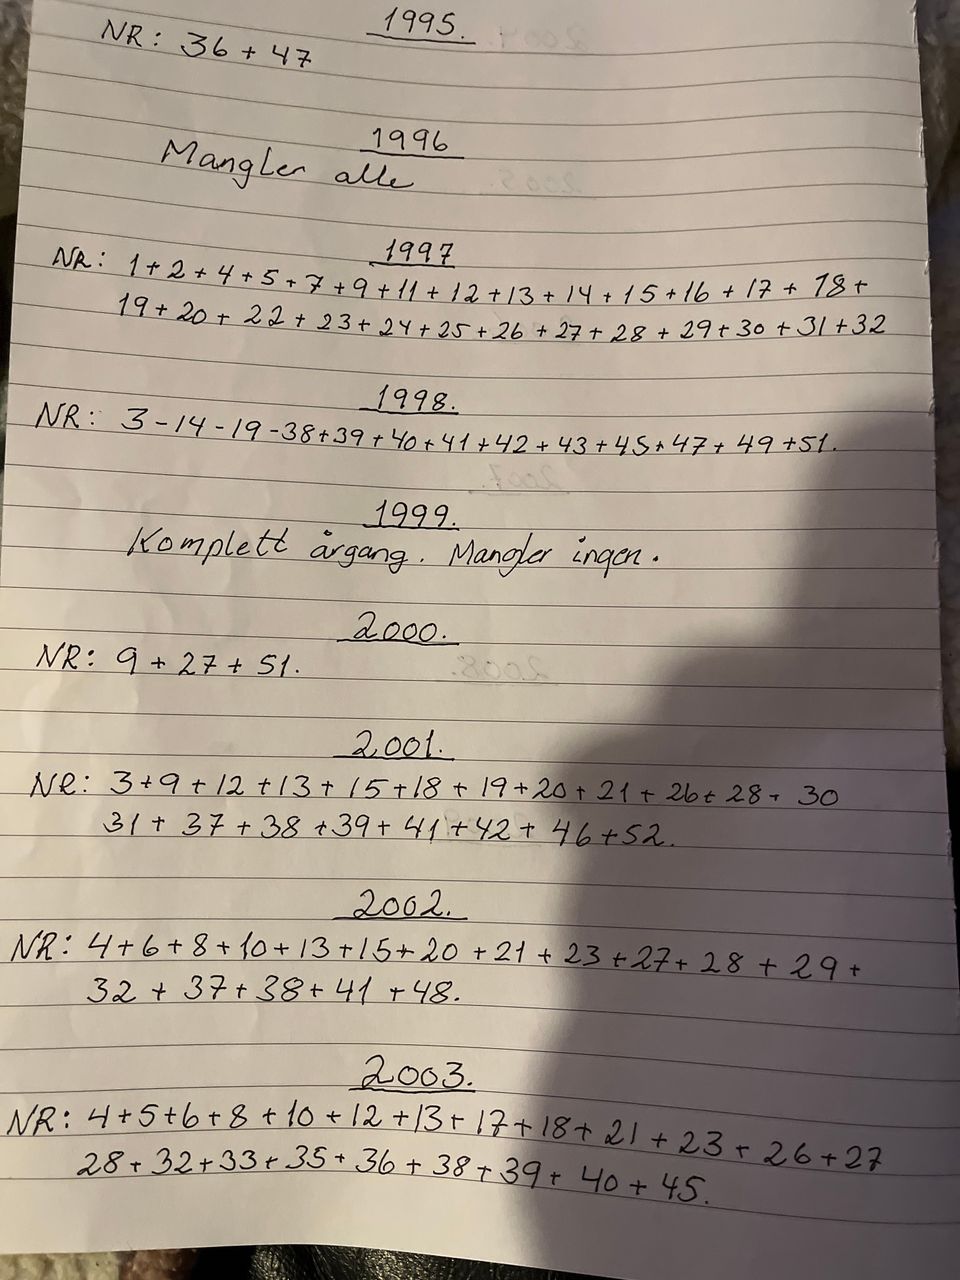 1995.
NR: 36 + 47
1996
Mangler alle
1997
NR: 1 + 2 + 4 + 5 + 7 + 9 + 11 + 12 + 13 + 14 + 15 + 16 + 17 + 18 +
19 + 20 + 22 + 23 + 24 + 25 + 26 + 27 + 28 + 29 + 30 + 31 + 32
1998.
NR: 3 - 14 - 19 - 38 + 39 + 40 + 41 + 42 + 43 + 45 + 47 + 49 + 51.
1999.
Komplett årgang. Mangler ingen.
2000.
NR: 9 + 27 + 51.
2001.
NR: 3 + 9 + 12 + 13 + 15 + 18 + 19 + 20 + 21 + 26 + 28 + 30
31 + 37 + 38 + 39 + 41 + 42 + 46 + 52.
2002.
NR: 4 + 6 + 8 + 10 + 13 + 15 + 20 + 21 + 23 + 27 + 28 + 29 +
32 + 37 + 38 + 41 + 48.
2003.
NR: 4 + 5 + 6 + 8 + 10 + 12 + 13 + 17 + 18 + 21 + 23 + 26 + 27
28 + 32 + 33 + 35 + 36 + 38 + 39 + 40 + 45.